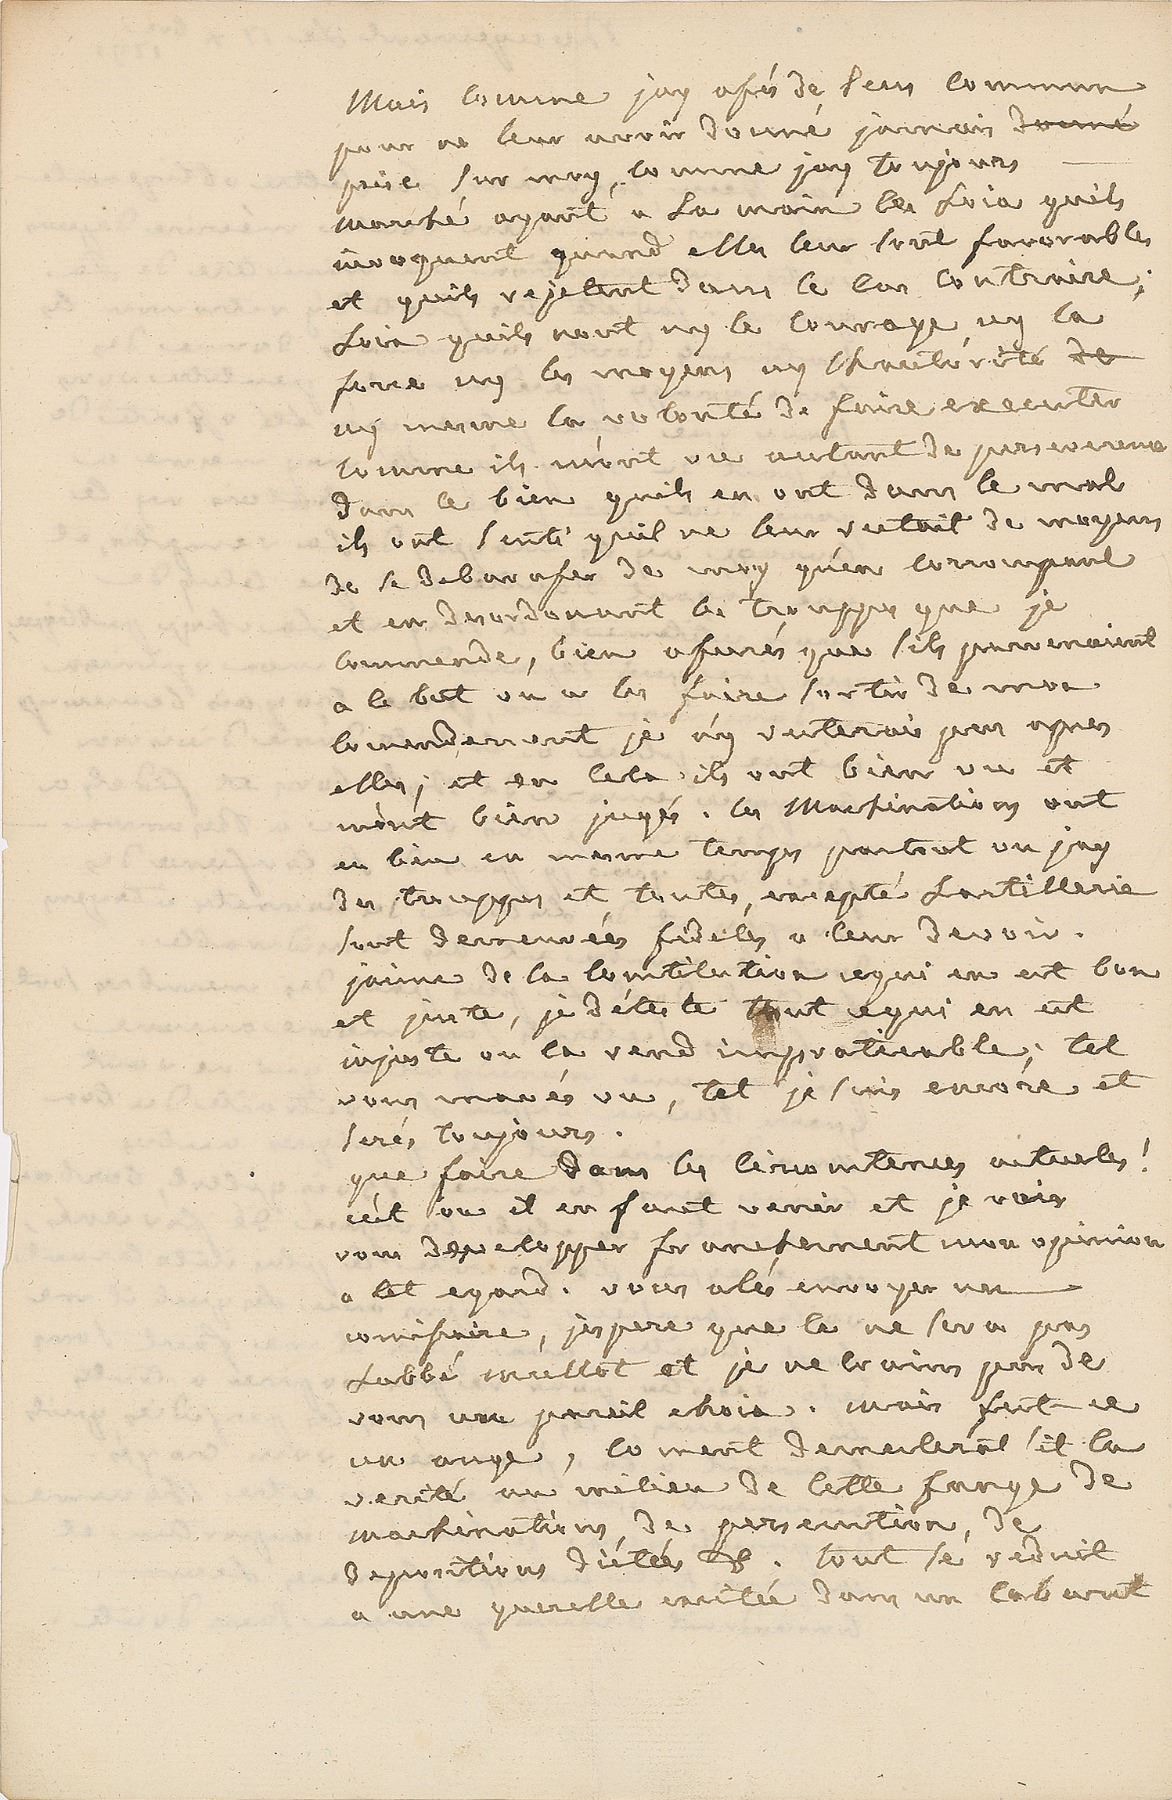 Mais comme jay assés de sens commun
pour ne leur avoir donné jamais donné
prise sur moy, comme jay toujours
marché ayant a la main les loix quils
invoquent quand elles leur sont favorables
et quils rejetent dans le cas contraire;
Loix quils nont ny le courage ny la
force ny les moyens ny lhautorité de
ny mesme la volonté de faire executer
comme ils mont vu autant de perseverence
dans le bien quils en ont dans le mal
ils ont senti quil ne leur restait de moyens
de se debarasser de moy quen corrompant
et en desordonnant les trouppes que je
commende, bien assurés que sils parvenaient
a ce but ou a les faire sortir de mon
comendement je ny resterais pas apres
elles; et en cela ils ont bien vu et
mont bien jugés. les Machinations ont
eu lieu en mesme temps partout ou jay
des trouppes et toutes, excepté Lartillerie
sont demeurées fideles a leur devoir.
jaime de la Constitution cequi en est bon
et juste, je déteste tout cequi en est
injuste ou la rend impraticable; tel
vous mavés vu, tel je suis encore et
serés toujours.
que faire dans les circonstences actuelles!
cest ou il en faut venir et je vais
vous developper franchement mon opinion
a cet egard. vous alés envoyer un
comissaire, jespere que ce ne sera pas
Labbé mullot et je ne crains pas de
vous un pareil choix. mais fut ce
un ange, coment demeslerat til la
verité au milieu de cette fange de
machinations, de persecution, de
depositions dictées &. tout se reduit
a une querelle excitée dans un cabaret